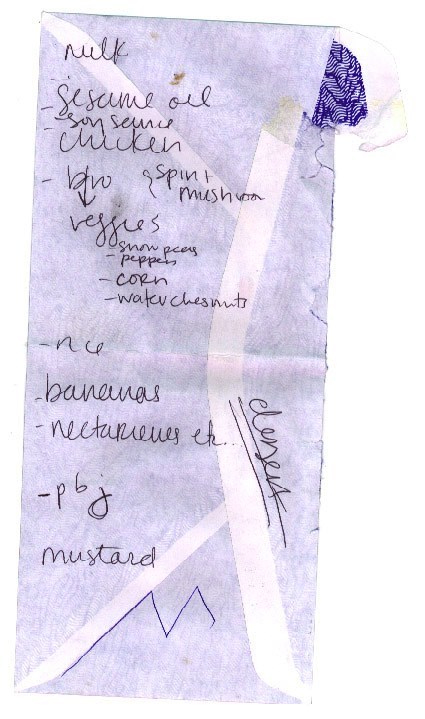 milk
- sesame oil
- soy sauce
chicken
- bro & spin +
mushroom
veggies
- snow peas
- peppers
- corn
- water chesnuts
- rice
- bananas
- nectarines etc...
desert
- pbj
mustard